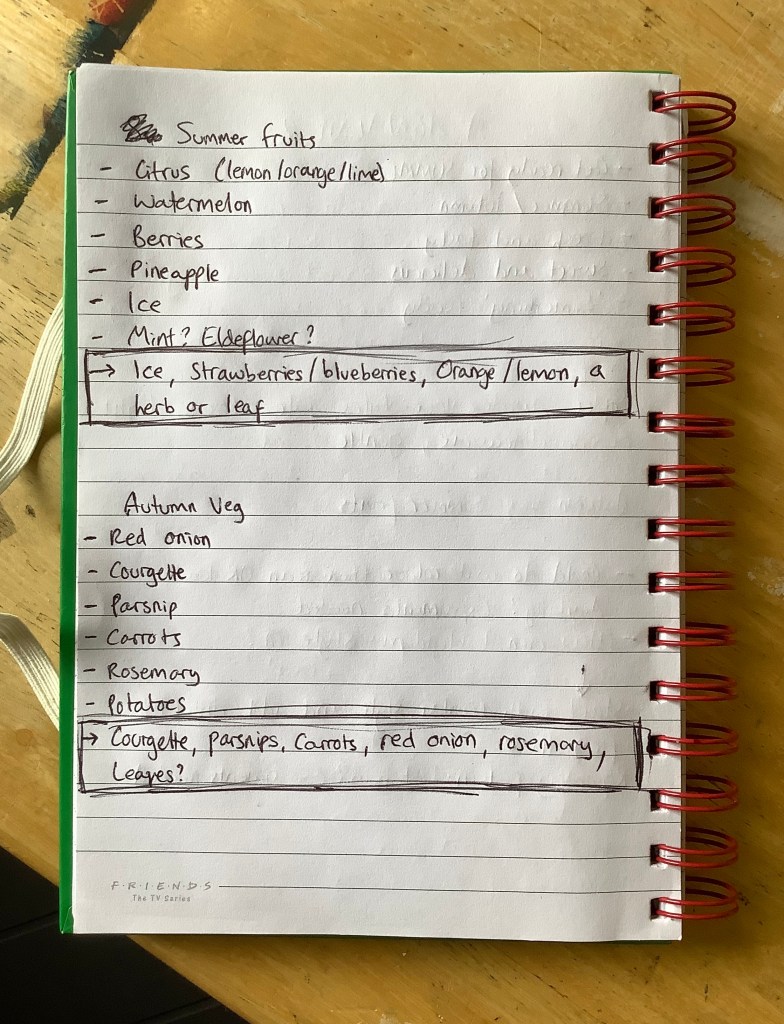 Summer fruits
- Citrus (lemon/orange/lime)
- Watermelon
- Berries
- Pineapple
- Ice
- Mint? Eldeflower?
→ Ice, Strawberries/blueberries, Orange/lemon, a
herb or leaf
Autumn Veg
- Red onion
- Courgette
- Parsnip
- Carrots
- Rosemary
- Potatoes
→ Courgette, parsnips, Carrots, red onion, rosemary,
Leaves?
F·R·I·E·N·D·S
The TV Series